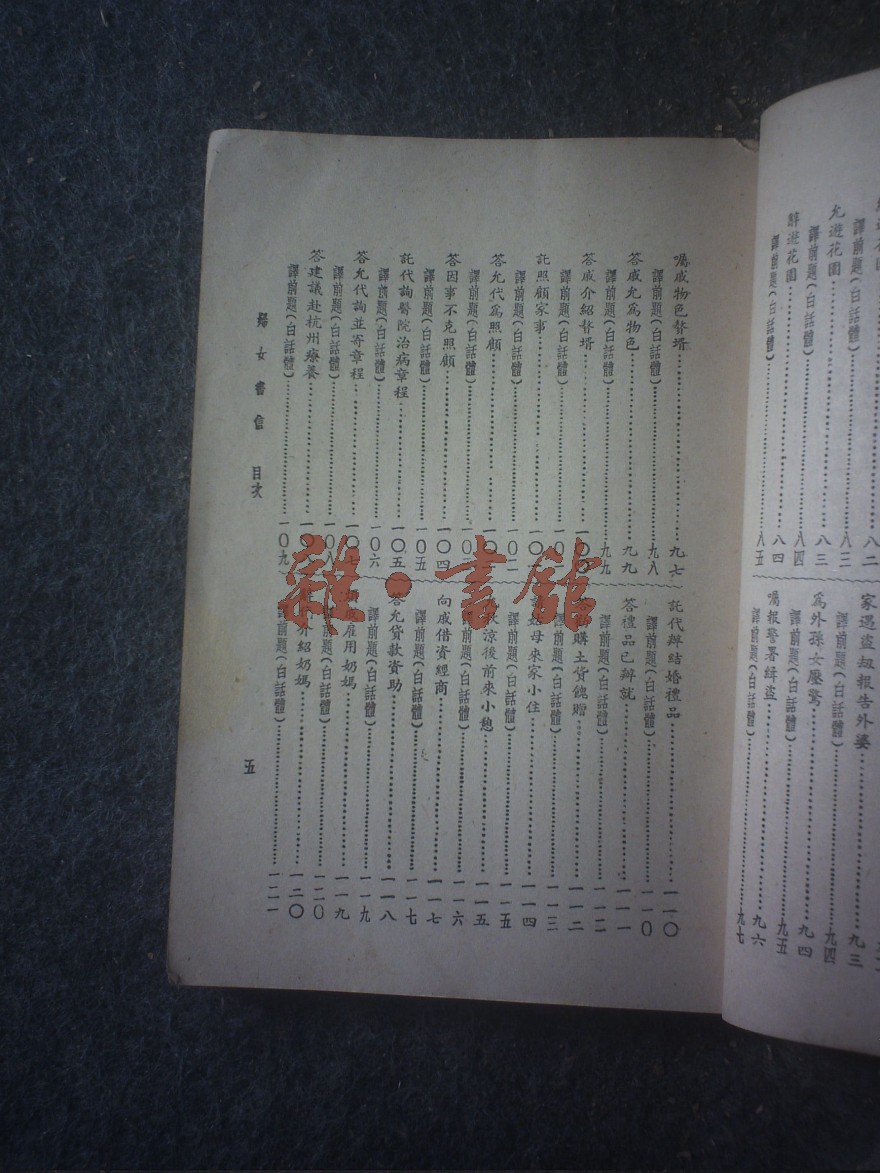 允遊花園……八三
譯前題(白話體)……八四
辭遊花園……八四
譯前題(白話體)……八五
家遇盜刼報告外婆……九三
譯前題(白話體)……九四
爲外孫女壓驚……九四
譯前題(白話體)……九五
囑報警署緝盜……九六
譯前題(白話體)……九七
囑戚物色贅壻……九七
譯前題(白話體)……九八
答戚允爲物色……九九
譯前題(白話體)……九九
答戚介紹贅壻……一〇〇
譯前題(白話體)
託照顧家事
譯前題(白話體)……一〇二
答允代爲照顧
譯前題(白話體)
答因事不克照顧……一〇四
譯前題(白話體)……一〇五
託代詢醫院治病章程……一〇五
譯前題(白話體)……一〇六
答允代詢並寄章程……一〇七
譯前題(白話體)……一〇八
答建議赴杭州療養
譯前題(白話體)……一〇九
託代辦結婚禮品……一一〇
譯前題(白話體)……一一〇
答禮品已辦就……一一一
譯前題(白話體)……一一二
購土貨餽贈……一一二
譯前題(白話體)……一一三
母來家小住……一一四
譯前題(白話體)……一一五
秋涼後前來小憩……一一五
譯前題(白話體)……一一六
向戚借資經商……一一七
譯前題(白話體)……一一七
答允貸款資助……一一八
譯前題(白話體)……一一九
雇用奶媽……一一九
譯前題(白話體)……一二〇
介紹奶媽……一二〇
譯前題(白話體)……一二一
婦女書信 目次
五
雜·書館